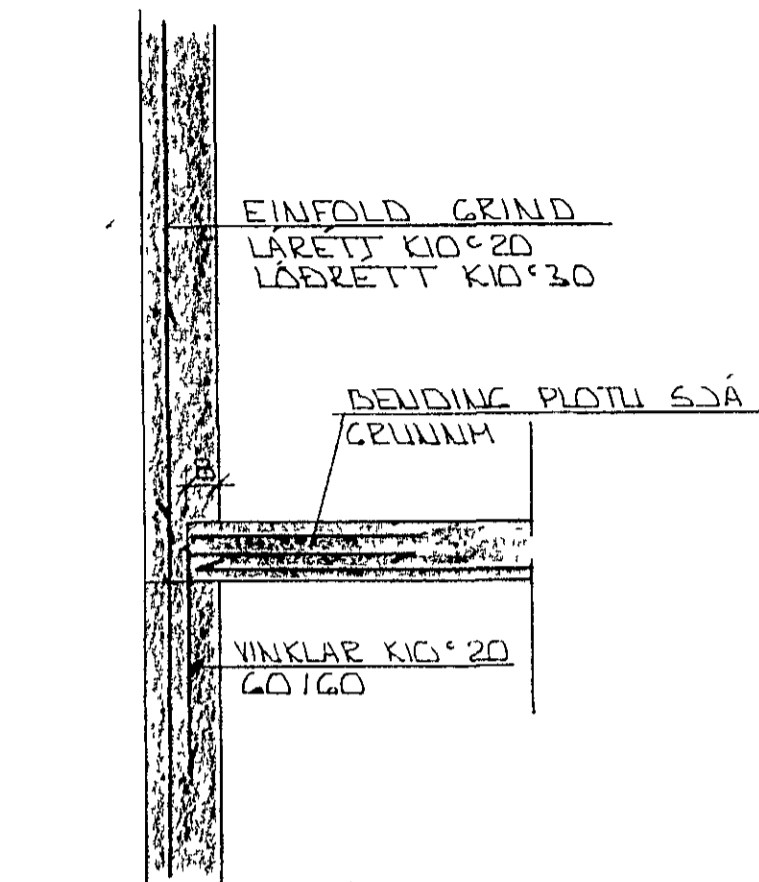 EINFOLD GRIND
LÁRÉTT K10 c 20
LÓÐRÉTT K10 c 30
BENDING PLOTU SJÁ
GRUNNM
8
VINKLAR K10 c 20
60/60